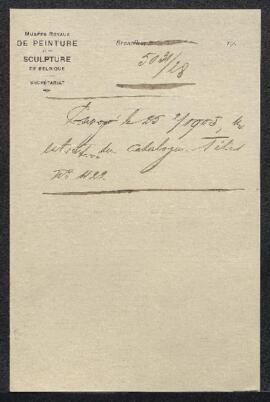 MUSÉES ROYAUX
DE PEINTURE
ET DE
SCULPTURE
DE BELGIQUE
SECRÉTARIAT
Bruxelles,
5031/28
Envoyé le 25 2/1903, un
extrait du catalogue Fétis
N° 422.